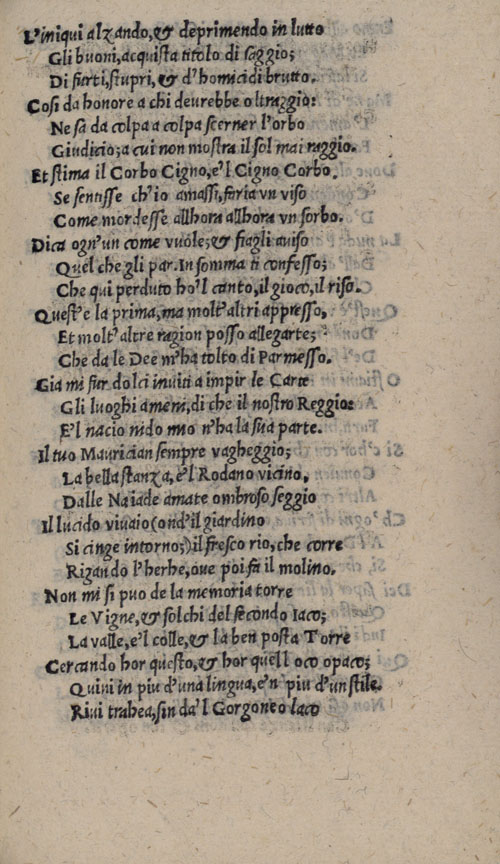 L'iniqui alzando, & deprimendo in lutto
Gli buoni, acquista titolo di saggio;
Di furti, stupri, & d'homicidi brutto.
Cosi da honore a chi deurebbe oltraggio:
Ne sà da colpa a colpa scerner l'orbo
Giudicio; a cui non mostra il sol mai raggio.
Et stima il Corbo Cigno, e'l Cigno Corbo.
Se sentisse ch'io amassi, faria vn viso
Come mordesse allhora allhora vn sorbo.
Dica ogn'un come vuole; & siagli auiso
Quel che gli par. In somma ti confesso;
Che qui perduto ho'l canto, il gioco, il riso.
Quest'e la prima, ma molt'altri appresso,
Et molt'altre ragion posso allegarte;
Che da le Dee m'ha tolto di Parmesso.
Gia mi fur dolci inuiti a impir le Carte
Gli luoghi ameni, di che il nostro Reggio:
E'l nacio nido mio n'ha la sua parte.
Il tuo Maurician sempre vagheggio;
La bella stanza, e'l Rodano vicino,
Dalle Naiade amate ombroso seggio
Il lucido viuaio (ond'il giardino
Si cinge intorno;) il fresco rio, che corre
Rigando l'herbe, oue poi fà il molino.
Non mi si puo de la memoria torre
Le Vigne, & solchi del secondo Iaco;
La valle, e'l colle, & la ben posta Torre
Cercando hor questo, & hor quell loco opaco;
Quiui in piu d'una lingua, e'n piu d'un stile.
Riui trahea, sin da'l Gorgoneo laco